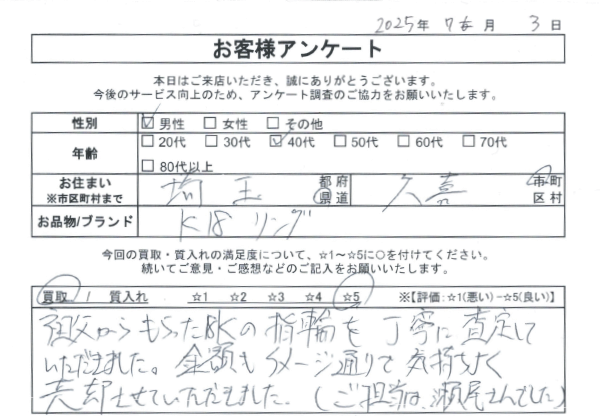 2025年 7月 3日
お客様アンケート
本日はご来店いただき、誠にありがとうございます。
今後のサービス向上のため、アンケート調査のご協力をお願いいたします。
性別 ☑男性 □女性 □その他
年齢 □20代 □30代 ☑40代 □50代 □60代 □70代
□80代以上
お住まい ※市区町村まで 埼玉 都府県道 久喜 市町区村
お品物/ブランド K18 リング
今回の買取・質入れの満足度について、☆1～☆5に○を付けてください。
続いてご意見・ご感想などのご記入をお願いいたします。
買取 / 質入れ ☆1 ☆2 ☆3 ☆4 ☆5 ※【評価:☆1(悪い)-☆5(良い)】
祖父からもらった18Kの指輪を丁寧に査定して
いただきました。金額もイメージ通りで気持ちよく
売却させていただきました。(ご担当は瀬尾さんでした)